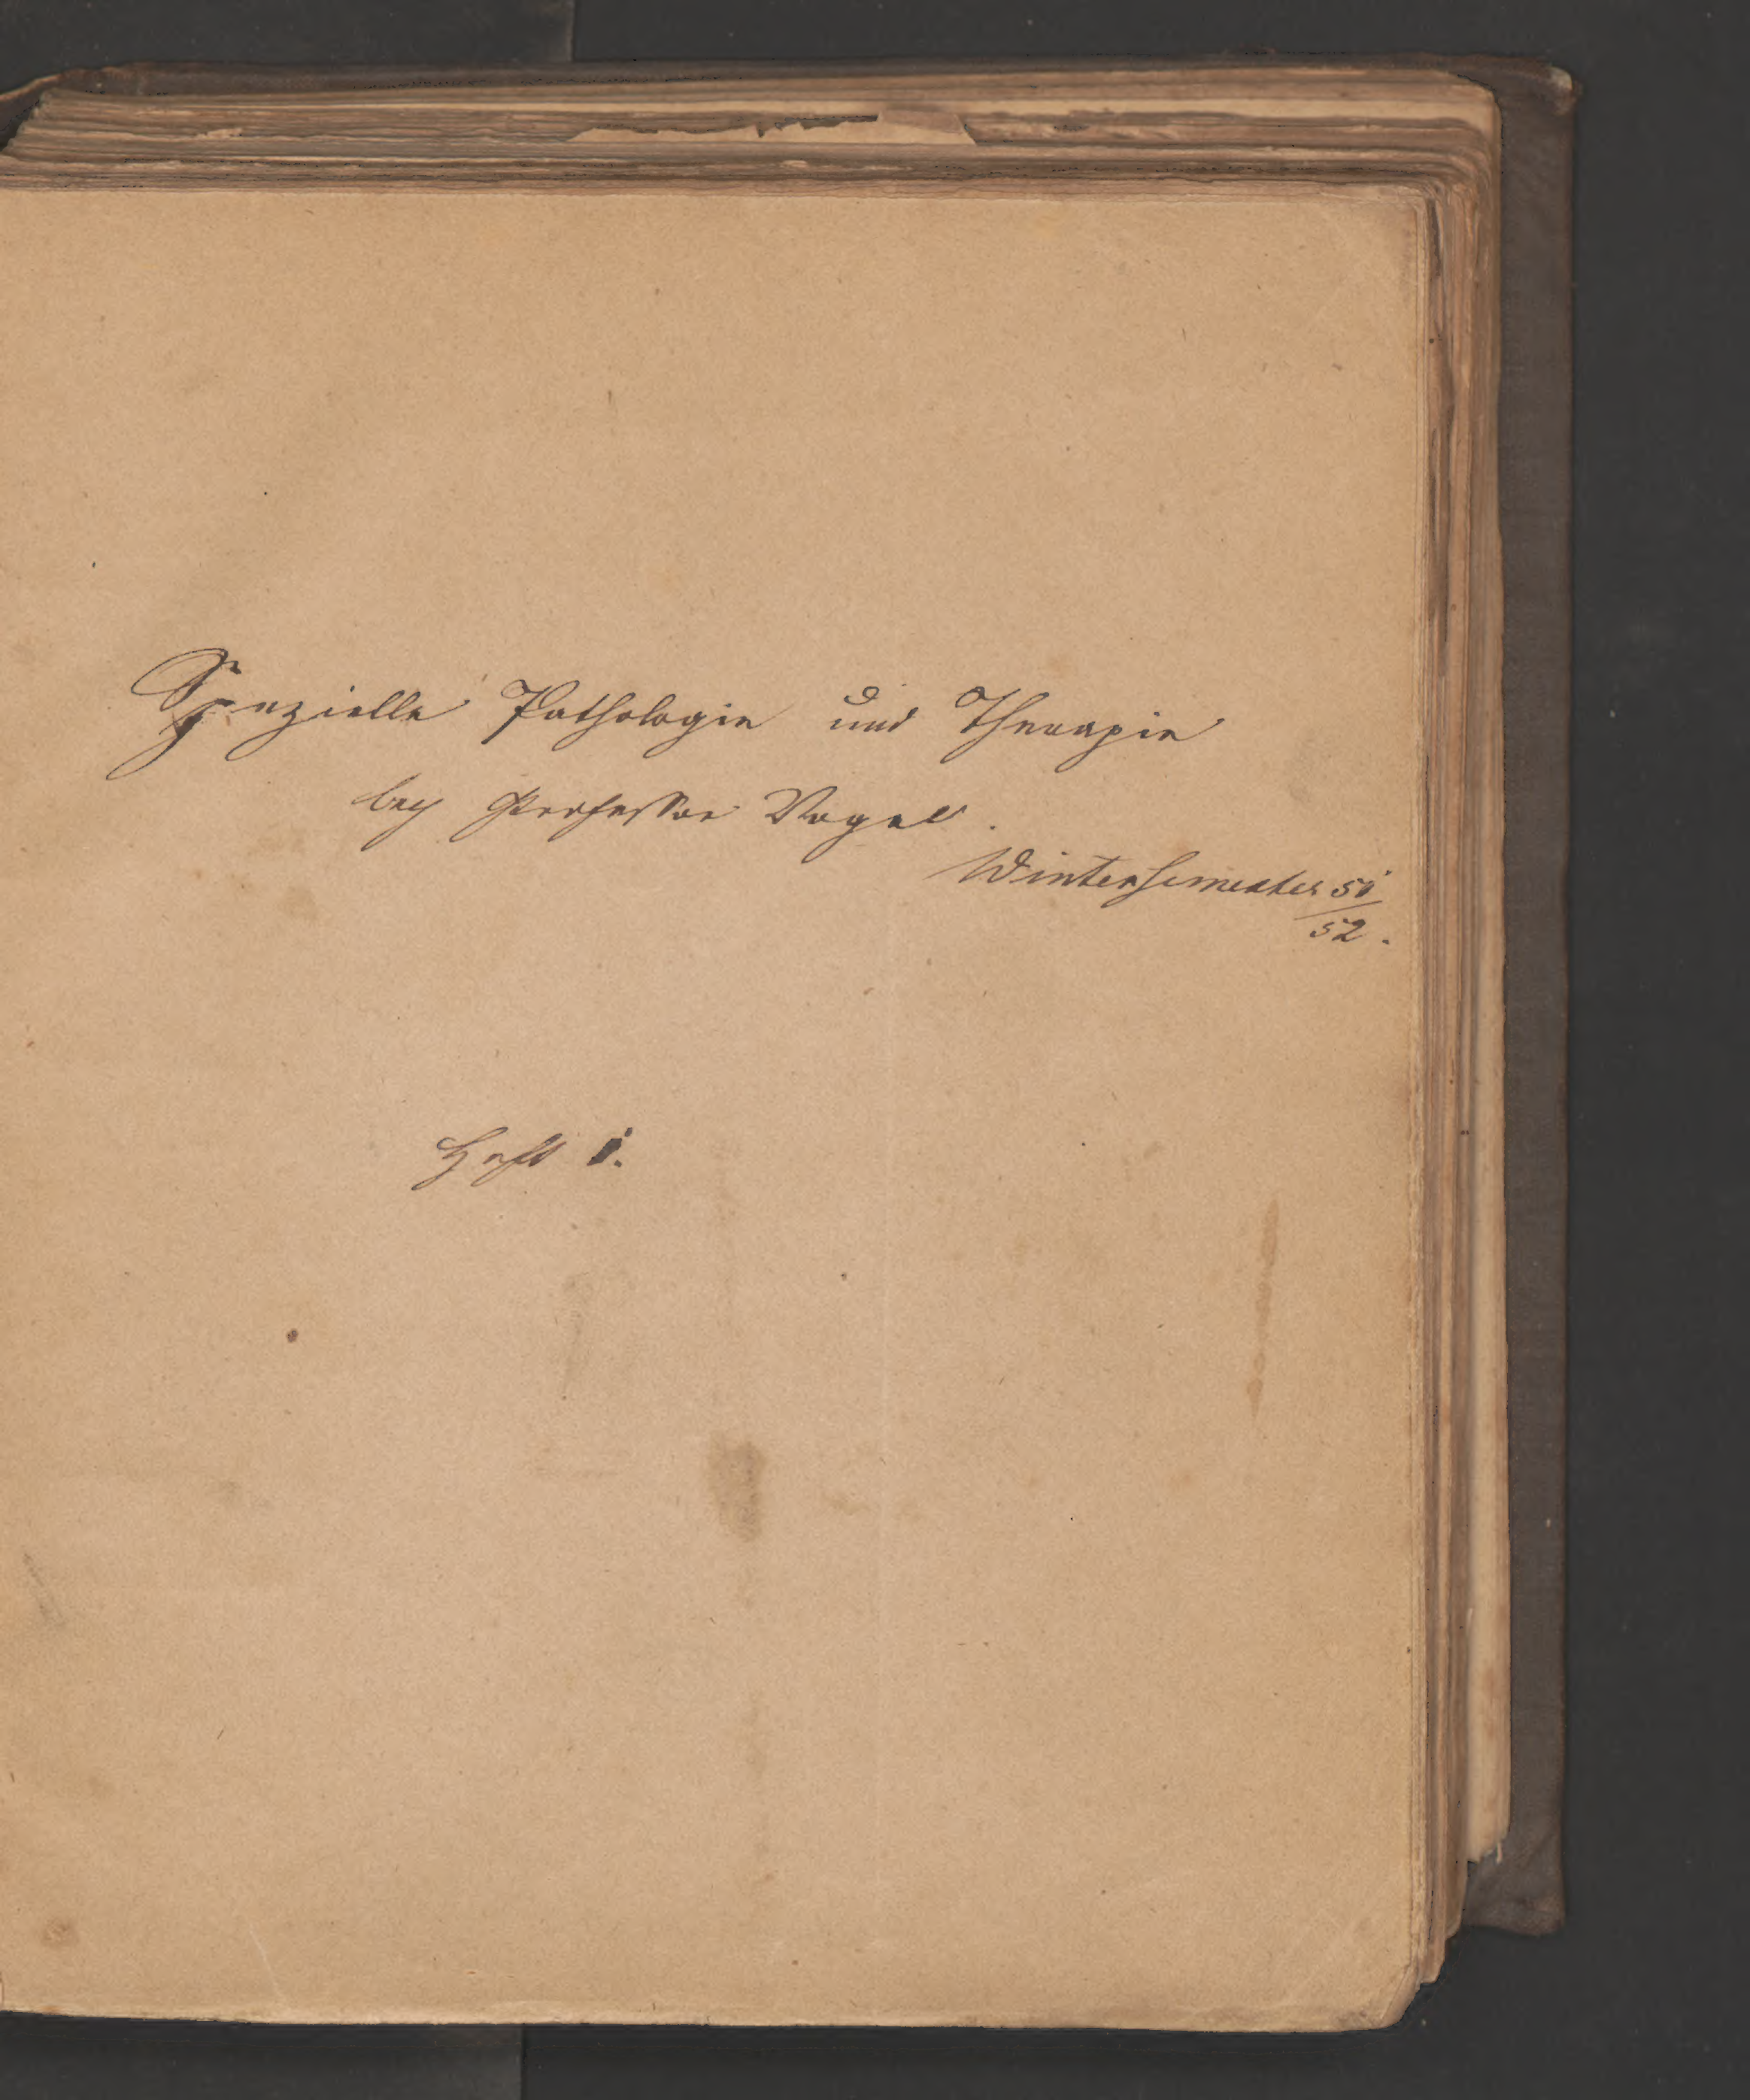 Spezielle Pathologie und Therapie
bey Professor Vogel.
Wintersemester 51/52.
Heft 1.